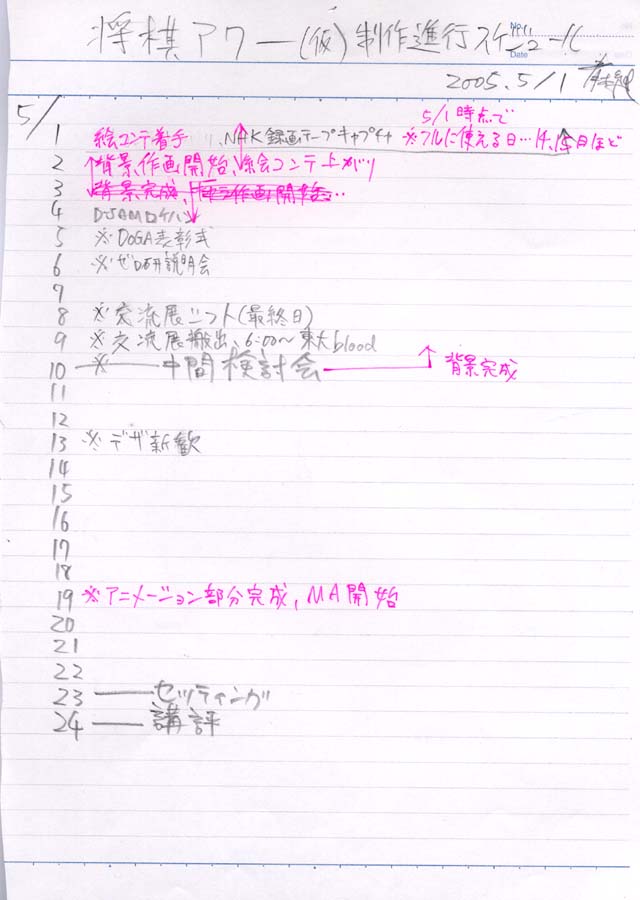 将棋アワー(仮)制作進行スケジュール
No.
Date
2005.5/1
5/
5/1時点で
1 絵コンテ着手 、NHK録画テープキャプチャ ※フルに使える日…14、15日ほど
2 背景、作画開始、絵コンテ上がり
3 背景完成、作画開始…
4 DSAMロケハン
5 ※DoGA表彰式
6 ※ゼロ研説明会
7
8 ※交流展ニフト(最終日)
9 ※交流展搬出、6:00〜東大blood
10 ※——中間検討会 背景完成
11
12
13 ※デザ新歓
14
15
16
17
18
19 ※アニメーション部分完成, MA開始
20
21
22
23 ——セッティング
24 ——講評